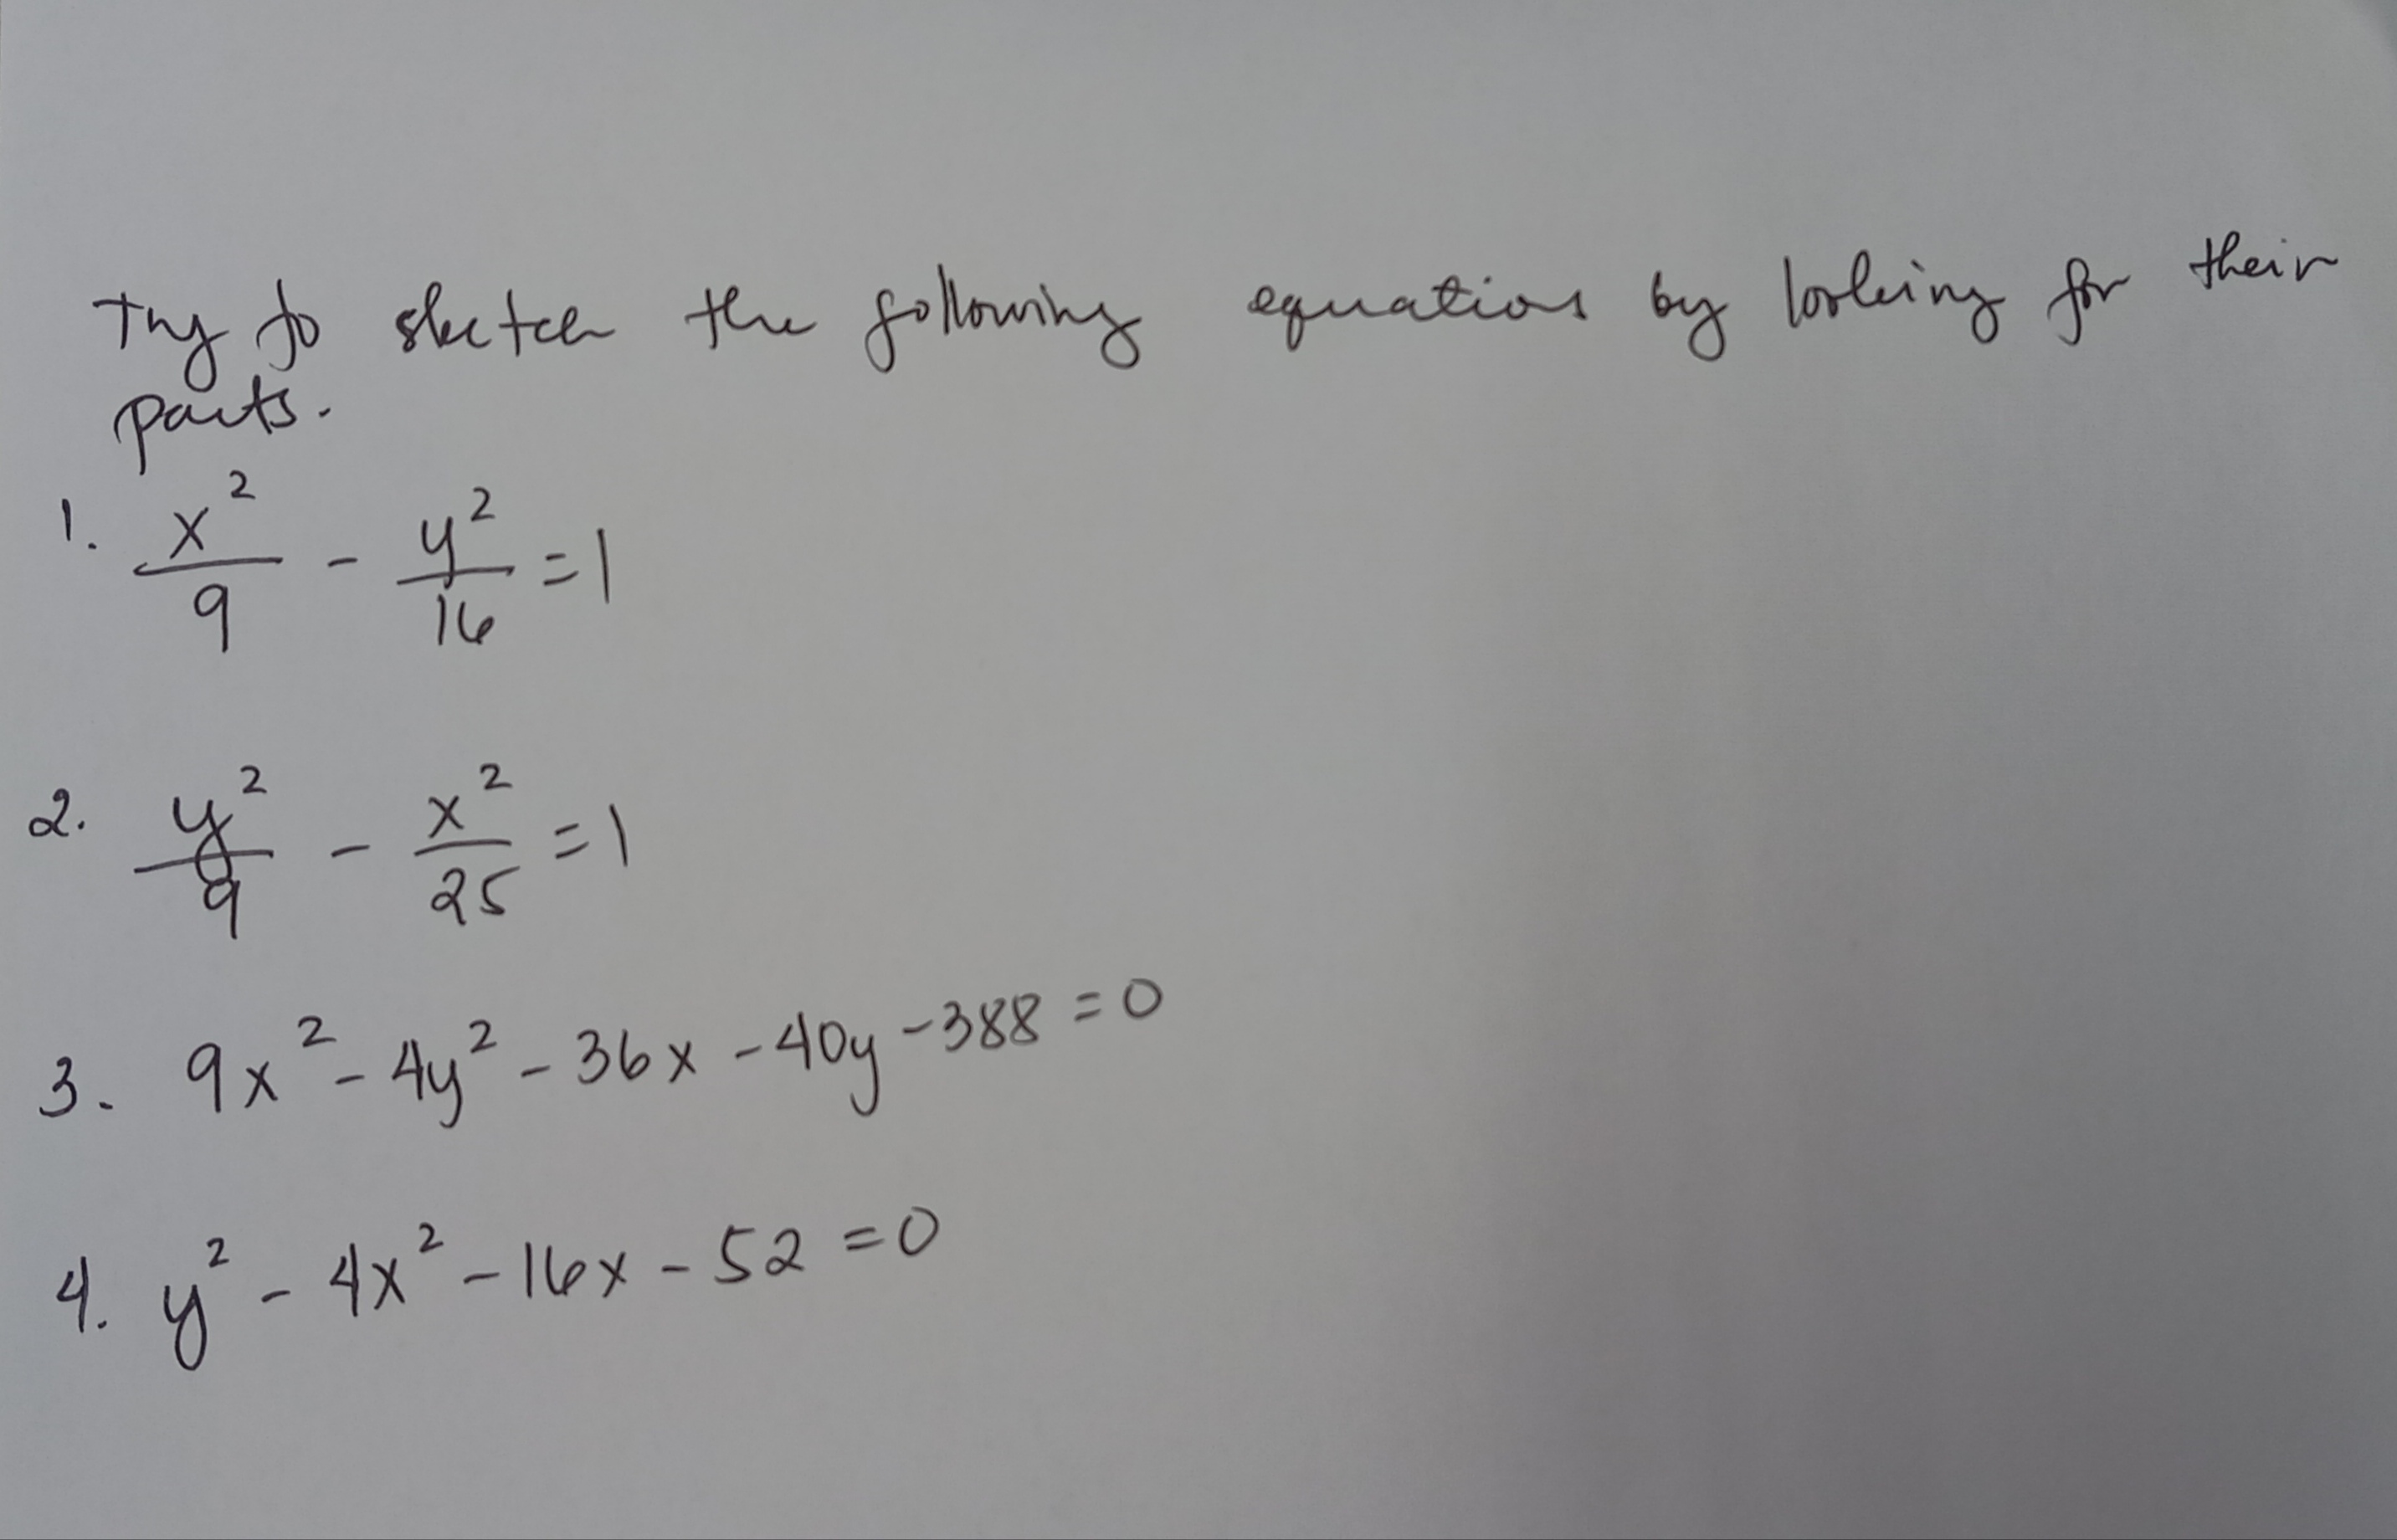 Try to sketch the following equations by looking for their
parts.
1. x²/9 - y²/16 = 1
2. y²/9 - x²/25 = 1
3. 9x² - 4y² - 36x - 40y - 388 = 0
4. y² - 4x² - 16x - 52 = 0